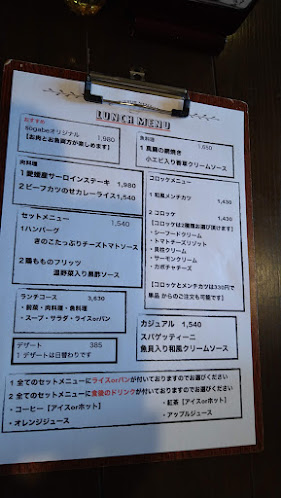 LUNCH MENU
おすすめ
Bogabeオリジナル 1,980
【お肉とお魚両方が楽しめます】
肉料理
1 愛媛産サーロインステーキ 1,980
2 ビーフカツのせカレーライス 1,540
セットメニュー 1,540
1 ハンバーグ
きのこたっぷりチーズトマトソース
2 鶏もものフリッツ
温野菜入り黒酢ソース
ランチコース 3,630
・前菜・肉料理・魚料理
・スープ・サラダ・ライスorパン
デザート 385
1 デザートは日替わりです
魚料理
1 真鯛の網焼き 1,650
小エビ入り香草クリームソース
コロッケメニュー
1 和風メンチカツ 1,430
2 コロッケ 1,430
【コロッケは2種類お選び頂けます】
・シーフードクリーム
・トマトチーズリゾット
・男性クリーム
・サーモンクリーム
・カボチャチーズ
【コロッケとメンチカツは330円で
単品 からのご注文も可能です】
カジュアル 1,540
スパゲッティーニ
魚貝入り和風クリームソース
1 全てのセットメニューにライスorパンが付いておりますのでお選びください
2 全てのセットメニューに食後のドリンクが付いておりますのでお選びください
・コーヒー【アイスorホット】
・紅茶【アイスorホット】
・オレンジジュース
・アップルジュース